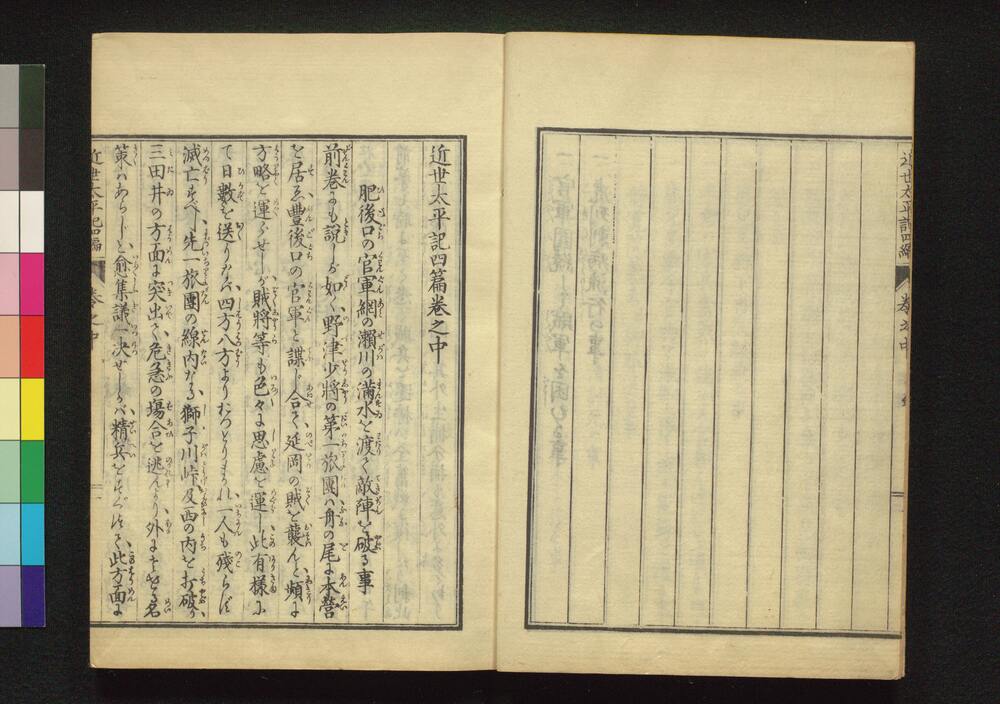 近世太平記四編 卷之中
近世太平記四篇卷之中
肥後口の官軍網の瀬川の満水を渡て敵陣を破る事
前巻にも説しが如く野津少將の第一旅團ハ舟の尾に本營
を居ゑ豊後口の官軍と諜し合て延岡の賊を襲んと頻に
方略を運らせしが賊將等も色々に思慮を運し此有様に
て日數を送りなバ四方八方よりおつとりまかれ一人も殘らず
滅亡すべし先一旅團の線内なる獅子川峠及西の内を打破り
三田井の方面に突出て危急の塲合を逃んより外にせる名
策ハあらじと愈集議一决せしかバ精兵をすぐつて此方面に
近世太平記四編 卷之中 一